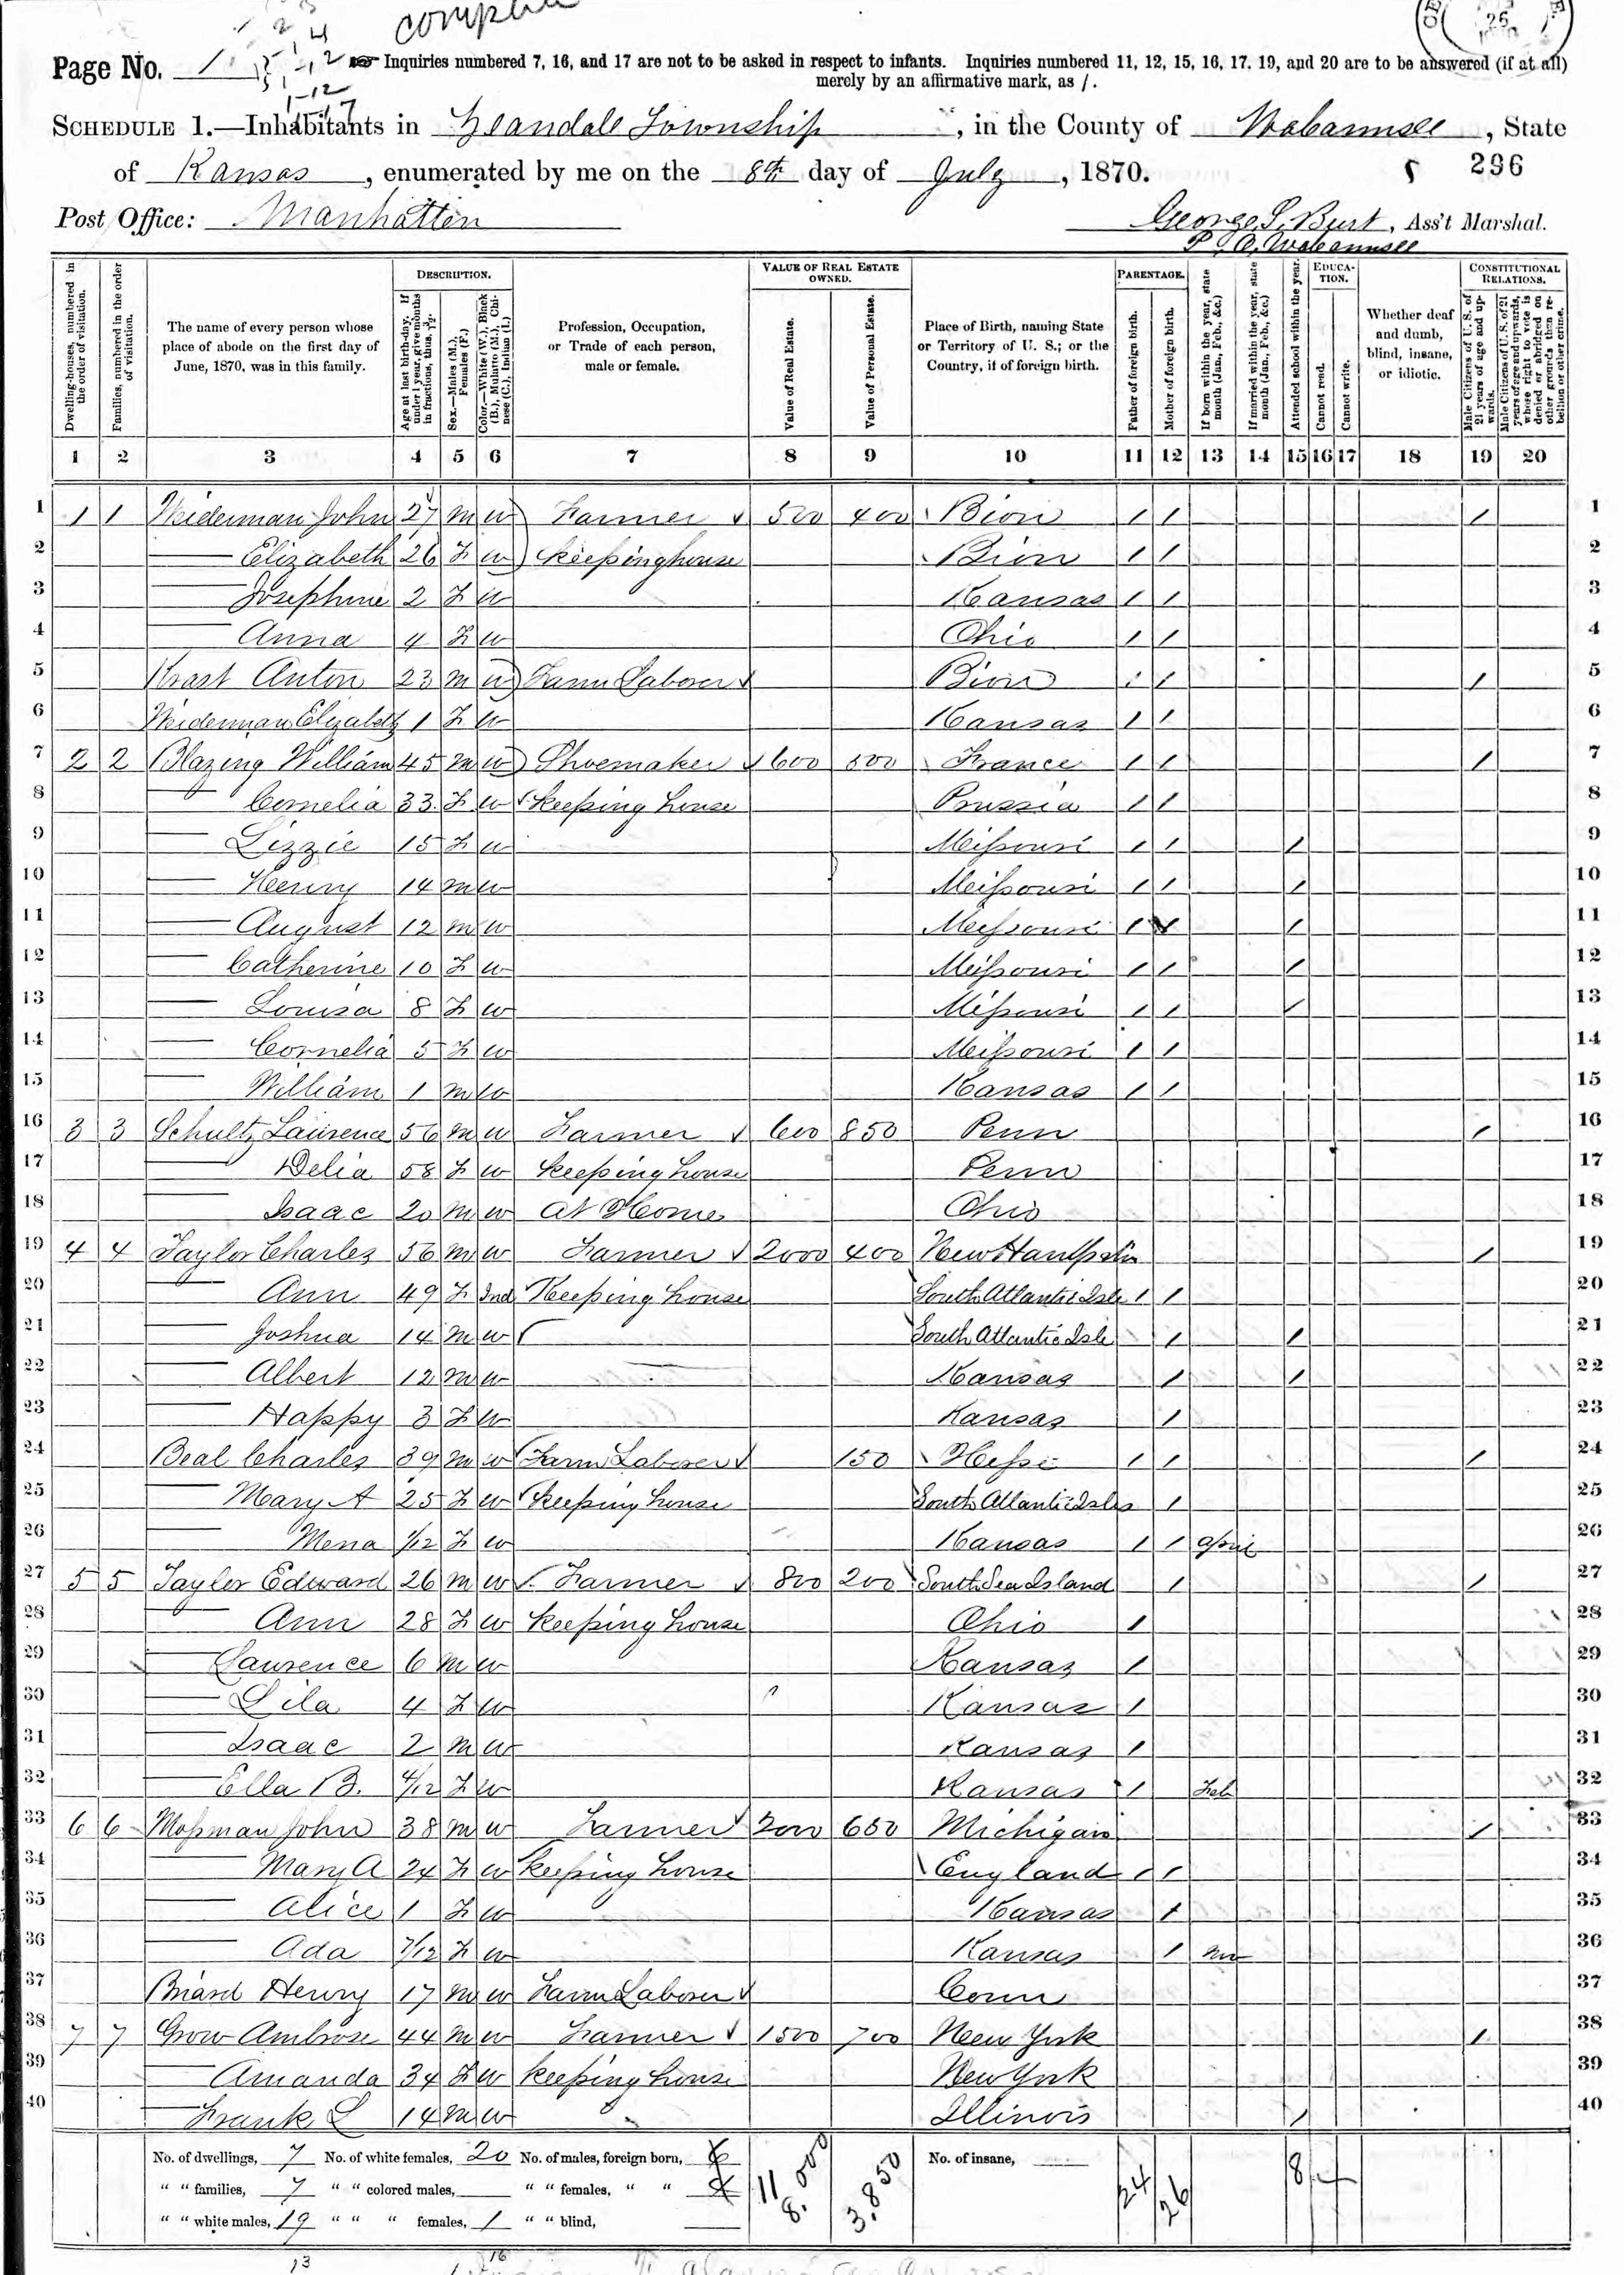 complete
Page No. 1
☞ Inquiries numbered 7, 16, and 17 are not to be asked in respect to infants. Inquiries numbered 11, 12, 15, 16, 17, 19, and 20 are to be answered (if at all)
merely by an affirmative mark, as /.
SCHEDULE 1.—Inhabitants in Zeandale Township, in the County of Wabaunsee, State
of Kansas, enumerated by me on the 8th day of July, 1870. 296
Post Office: Manhatten George S. Burt, Ass't Marshal.
P.O. Wabaunsee
Dwelling-houses, numbered in the order of visitation.
Families, numbered in the order of visitation.
The name of every person whose place of abode on the first day of June, 1870, was in this family.
DESCRIPTION.
Age at last birth-day. If under 1 year, give months in fractions, thus, 3/12.
Sex.—Males (M.), Females (F.)
Color.—White (W.), Black (B.), Mulatto (M.), Chinese (C.), Indian (I.)
Profession, Occupation, or Trade of each person, male or female.
VALUE OF REAL ESTATE OWNED.
Value of Real Estate.
Value of Personal Estate.
Place of Birth, naming State or Territory of U. S.; or the Country, if of foreign birth.
PARENTAGE.
Father of foreign birth.
Mother of foreign birth.
If born within the year, state month (Jan., Feb., &c.)
If married within the year, state month (Jan., Feb., &c.)
Attended school within the year.
EDUCATION.
Cannot read.
Cannot write.
Whether deaf and dumb, blind, insane, or idiotic.
CONSTITUTIONAL RELATIONS.
Male Citizens of U. S. of 21 years of age and upwards.
Male Citizens of U. S. of 21 years of age and upwards, whose right to vote is denied or abridged on other grounds than rebellion or other crime.
1 2 3 4 5 6 7 8 9 10 11 12 13 14 15 16 17 18 19 20
1 1 1 Weiderman John 27 M W Farmer 500 400 Bion / / / 1
2 Elizabeth 26 F W keeping house Bion / / 2
3 Josephine 2 F W Kansas / / 3
4 Anna 4 F W Ohio / / 4
5 Krast Anton 23 M W Farm Laborer Bion / / / 5
6 Weiderman Elizabeth 1 F W Kansas / / 6
7 2 2 Blazing William 45 M W Shoemaker 600 500 France / / / 7
8 Cornelia 33 F W keeping house Prussia / / 8
9 Lizzie 15 F W Missouri / / / 9
10 Henry 14 M W Missouri / / / 10
11 August 12 M W Missouri / / / 11
12 Catherine 10 F W Missouri / / / 12
13 Louisa 8 F W Missouri / / / 13
14 Cornelia 5 F W Missouri / / 14
15 William 1 M W Kansas / / 15
16 3 3 Schultz Laurence 56 M W Farmer 600 850 Penn / 16
17 Delia 58 F W keeping house Penn 17
18 Isaac 20 M W At Home Ohio 18
19 4 4 Taylor Charles 56 M W Farmer 2000 400 New Hampshir / 19
20 Ann 49 F Ind Keeping house South Atlantic Isle / / 20
21 Joshua 14 M W South Atlantic Isle / / 21
22 Albert 12 M W Kansas / / 22
23 Happy 3 F W Kansas / 23
24 Beal Charles 39 M W Farm Laborer 150 Hesse / / / 24
25 Mary A 25 F W keeping house South Atlantic Isles / 25
26 Mena 1/12 F W Kansas / / April 26
27 5 5 Taylor Edward 26 M W Farmer 800 200 South Sea Island / / 27
28 Ann 28 F W keeping house Ohio / 28
29 Laurence 6 M W Kansas / 29
30 Lila 4 F W Kansas / 30
31 Isaac 2 M W Kansas / 31
32 Ella B. 4/12 F W Kansas / Feb 32
33 6 6 Mosman John 38 M W Farmer 2000 650 Michigan / 33
34 Mary A 24 F W keeping house England / / 34
35 Alice 1 F W Kansas / 35
36 Ada 7/12 F W Kansas / Nov 36
37 Briard Henry 17 M W Farm Laborer Conn 37
38 7 7 Grow Ambrose 44 M W Farmer 1500 700 New York / 38
39 Amanda 34 F W keeping house New York 39
40 Frank L 14 M W Illinois / 40
No. of dwellings, 7 No. of white females, 20 No. of males, foreign born, No. of insane,
" " families, 7 " " colored males, " " females, " "
" " white males, 19 " " " females, 1 " " blind,
11 8.000 3.850 24 26 8
13 16